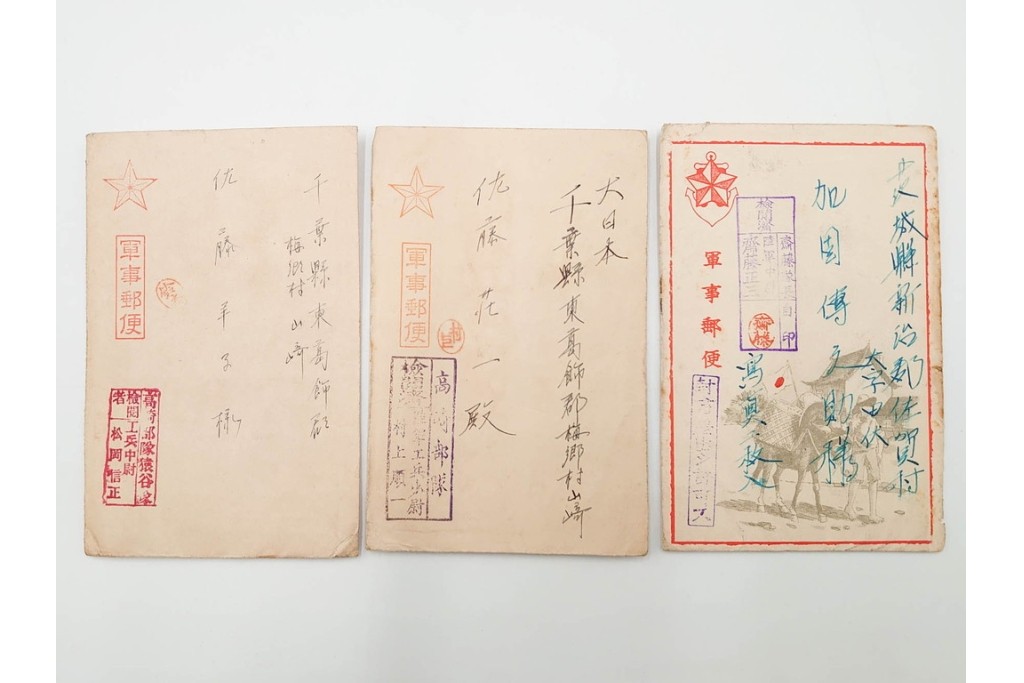 千葉縣東葛飾郡
梅郷村山崎
佐藤羊子様
軍事郵便
検閲
者
工兵中尉
松岡信正
大日本
千葉縣東葛飾郡梅郷村山崎
佐藤荘一殿
軍事郵便
高崎部隊
検閲
村上順一
茨城縣新治郡佐賀村
大字田伏
加固傳之助様
写真
軍事郵便
検閲済
陸軍中尉
齋藤正二
印